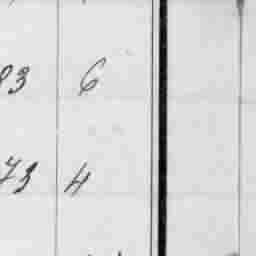 83 6
73 4